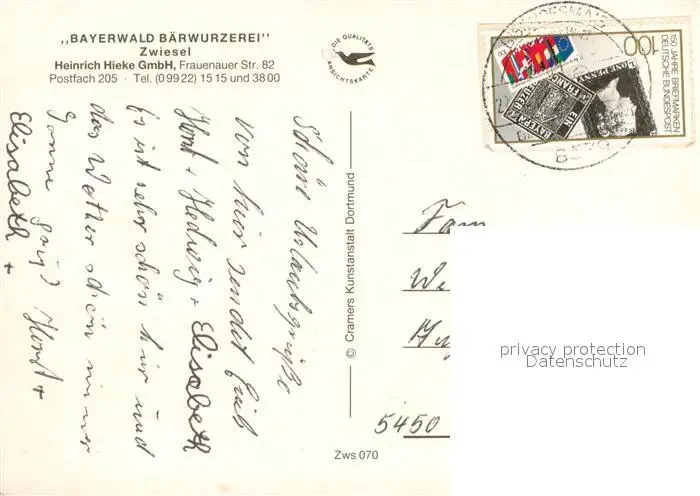 „BAYERWALD BÄRWURZEREI"
Zwiesel
Heinrich Hieke GmbH, Frauenauer Str. 82
Postfach 205 · Tel. (0 99 22) 15 15 und 38 00
DIE QUALITÄTS
ANSICHTSKARTE
150 JAHRE BRIEFMARKEN
DEUTSCHE BUNDESPOST
100
ONE PENNY
BAYERN
EIN
KREUZER
FRANCO
Schöne Urlaubsgrüße
von hier sendet Euch
Horst + Hedwig + Elisabeth
Es ist sehr schön hier und
das Wetter schön immer
Sonne
Horst +
Elisabeth +
© Cramers Kunstanstalt Dortmund
Fam
We
5450
Zws 070
privacy protection
Datenschutz